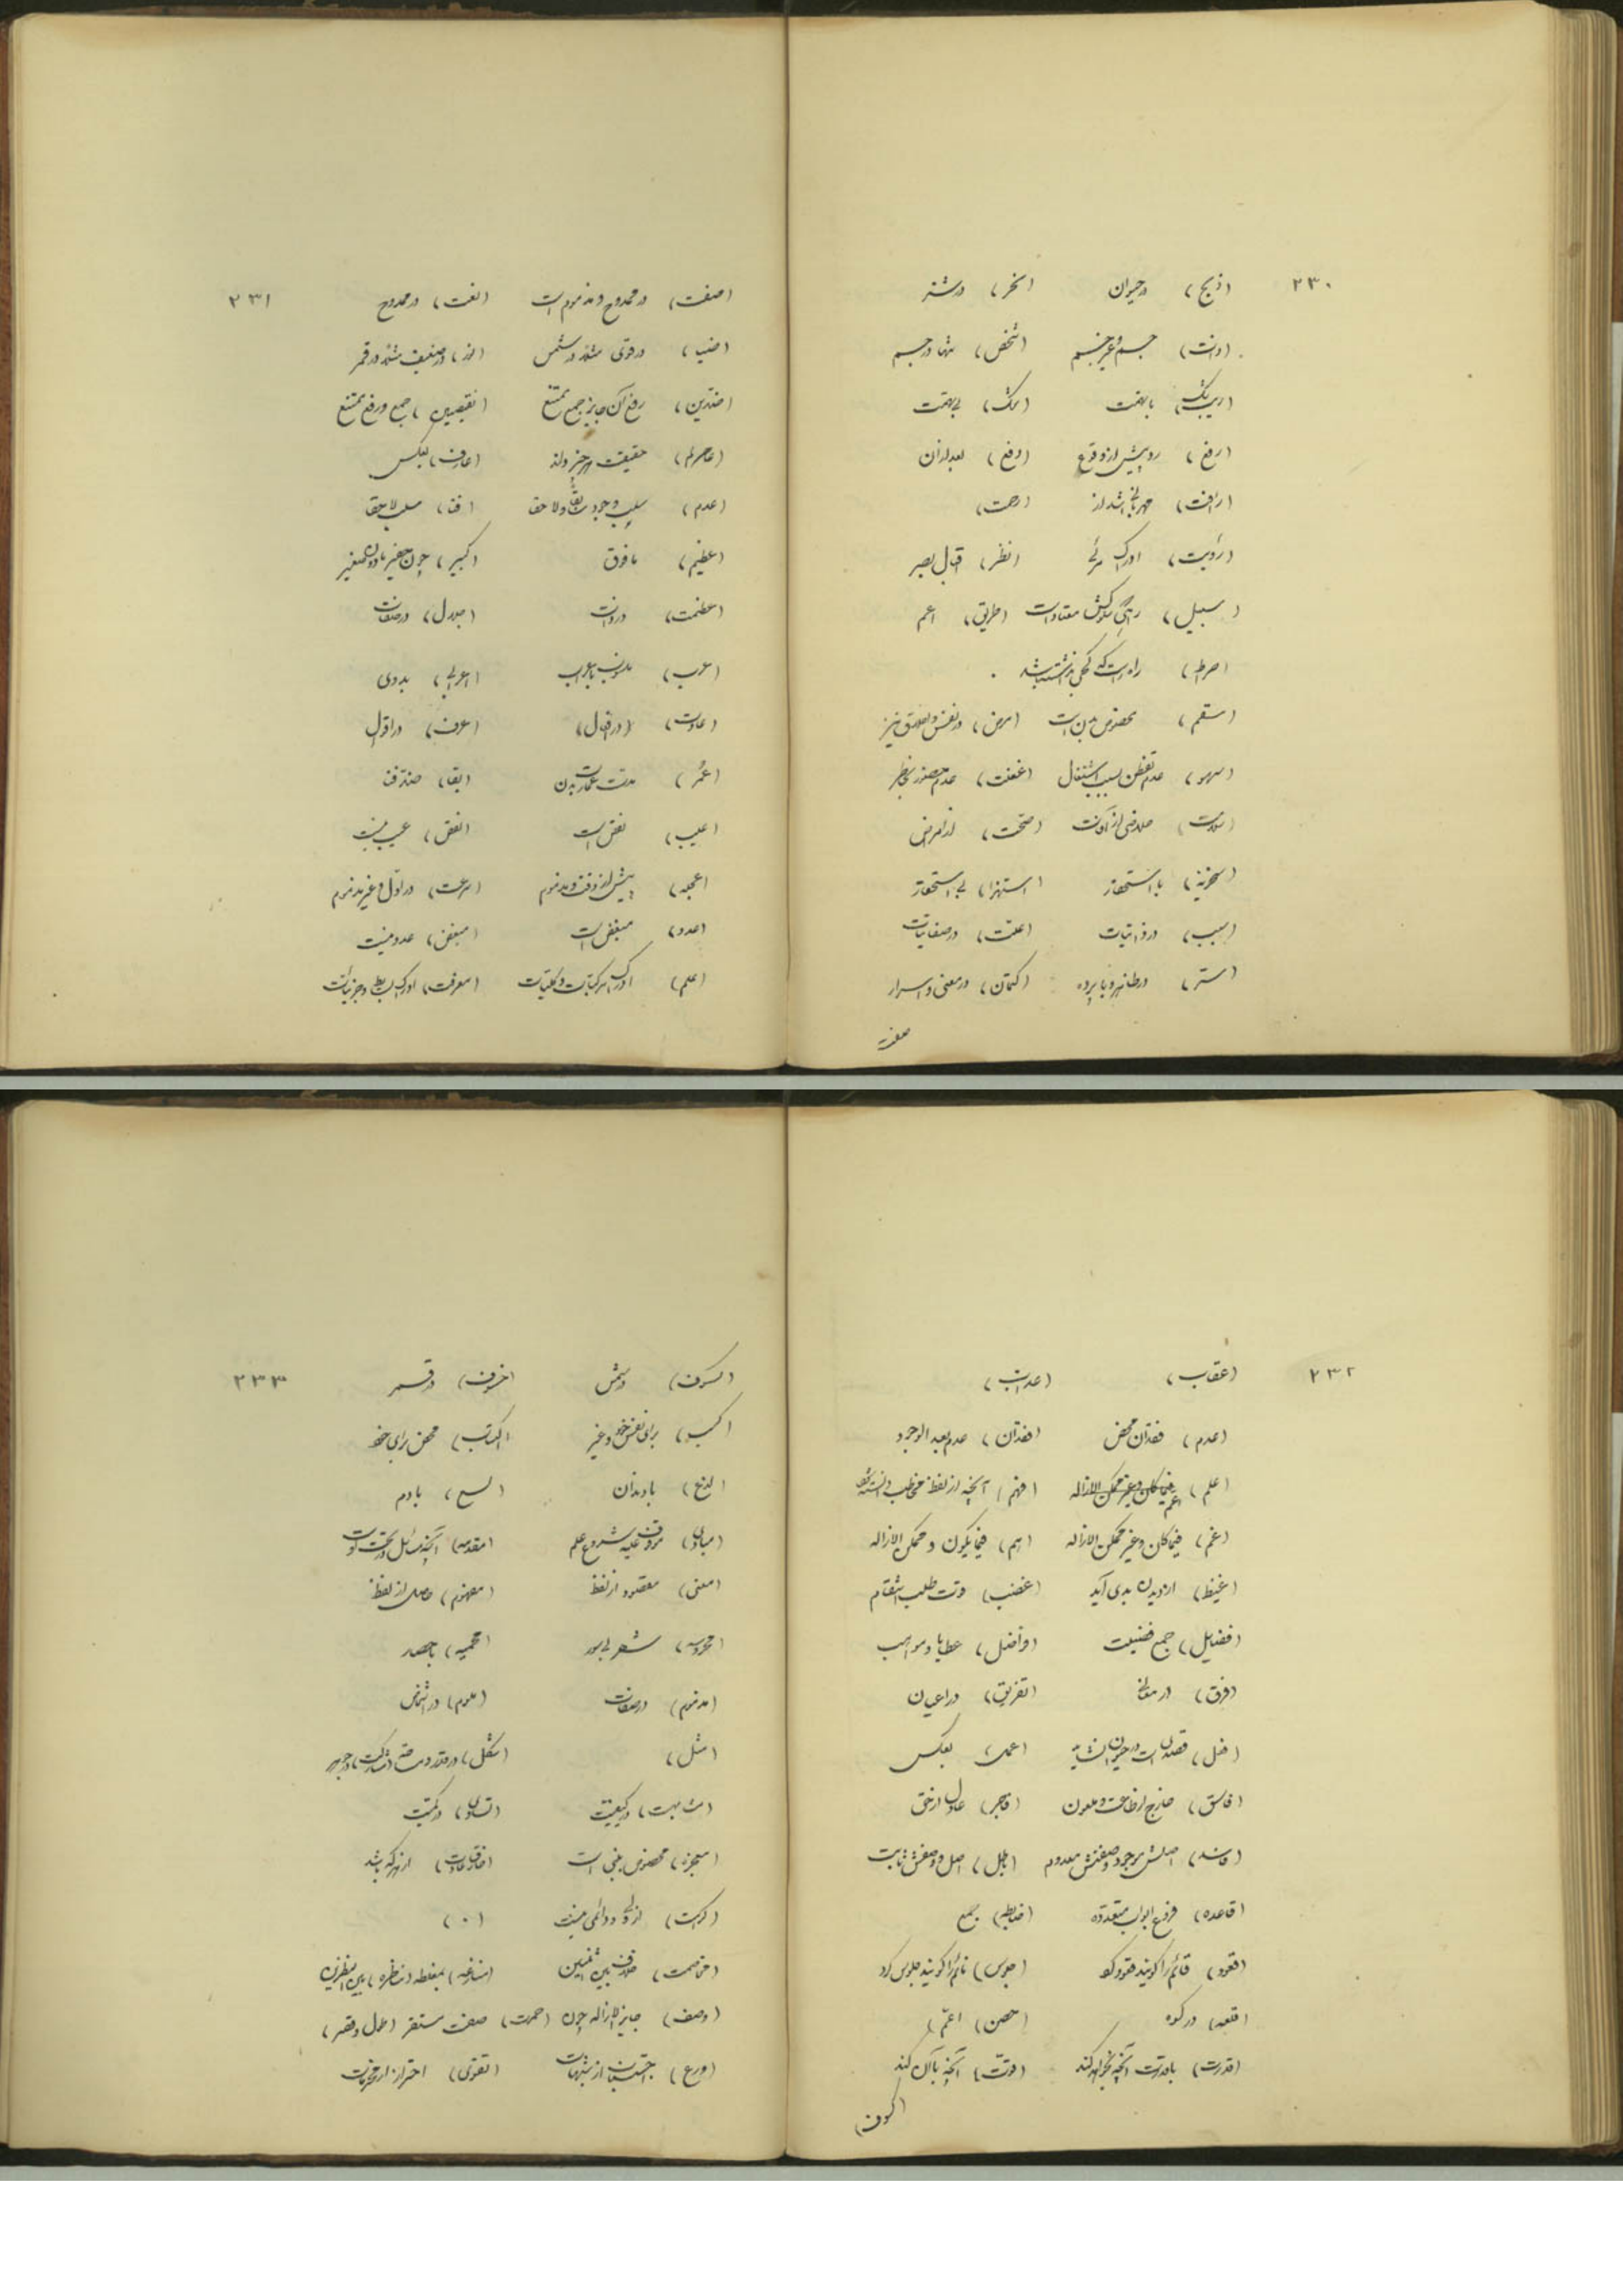 ٢٣٠
(ذبح) در حیوان (نحر) در شتر
(ذات) جسم و غیر جسم (شخص) تنها در جسم
(ریب) شک با تهمت (شک) بی تهمت
(رفع) رد پیش از وقوع (دفع) بعد از آن
(رأفت) مهربانی اشد از (رحمت)
(رؤیت) ادراک مرئی (نظر) اقبال بصر
(سبیل) راهی سلوکش معتاد است (طریق) اعم
(صراط) راه راست که کجی نداشته باشد
(سقم) مخصوص بدن است (مرض) در نفس و اخلاق نیز
(سهو) عدم تفطن بسبب اشتغال (غفلت) عدم حضور بخاطر
(سلامت) خلاصی از آفت (صحت) از امراض
(سخریه) با استحقار (استهزا) بی استحقار
(سبب) در ذاتیات (علت) در صفاتیات
(ستر) در ظاهر و با پرده (کتمان) در معنی و اسرار
صفت
٢٣١
(صفت) در ممدوح و مذموم است (نعت) در ممدوح
(ضیا) در قوی مثلا در شمس (نور) در ضعیف مثلا در قمر
(ضدین) رفع آن جایز جمع ممتنع (نقیضین) جمع و رفع ممتنع
(عالم) حقیقت هر چیز داند (عارف) بعکس
(عدم) سلب وجود سابقا ولاحقا (فنا) سلب لاحقا
(عظیم) مافوق (کبیر) چون حقیر مادون صغیر
(عظمت) در ذات (جلال) در صفات
(عرب) منسوب بعرب (اعرابی) بدوی
(عادت) (در افعال) (عرف) در اقوال
(عُمر) مدت عمارت بدن (بقا) ضد فنا
(عیب) نقص است (نقص) عیب نیست
(عجله) پیش از وقت و مذموم (سرعت) در اول و غیر مذموم
(عدو) مبغض است (مبغض) عدو نیست
(علم) ادراک مرکبات و کلیات (معرفت) ادراک بسایط و جزئیات
٢٣٢
(عقاب) (عذاب)
(عدم) فقدان محض (فقدان) عدم بعد الوجود
(علم) اعم (فهم) آنچه از لفظ مخاطب دانسته شود
(غم) فیما کان و غیر ممکن الازاله (هم) فیما یکون و ممکن الازاله
(غیظ) از دیدن بدی آید (غضب) وقت طلب انتقام
(فضایل) جمع فضیلت (فواضل) عطایا و مواهب
(فرق) در معانی (تفریق) در اعیان
(فعل) (عمل) بعکس
(فاسق) خارج از طاعت و ملعون (فاجر) عادل از حق
(فاسد) اصلش موجود وصفش معدوم (باطل) اصل و وصفش نابت
(قاعده) فروع ابواب متعدده (ضابطه) جمع
(قعود) قائم را گویند قعود کرد (جلوس) نائم را گویند جلوس کرد
(قلعه) در کوه (حصن) اعمّ
(قدرت) با قدرت آنچه بخواهد کند (قوّت) آنچه با آن کند
(کسوف)
٢٣٣
(کسوف) در شمس (خسوف) در قمر
(کسب) برای نفس خود و غیر (اکتساب) محض برای خود
(لدغ) با دندان (لسع) با دم
(مبادی) موقوف علیه شروع علم (مقدمه) آنچه مسائل در تحت اوست
(معنی) مقصود از لفظ (مفهوم) حاصل از لفظ
(محروسه) شهر بی سور (محمیه) با حصار
(مذموم) در صفات (ملوم) در اشخاص
(مثل) (شکل) در قدر و مساحت
(مشابهت) در کیفیت (تساوی) در کمیت
(معجزه) مخصوص نبی است (خارق عادت) از هر که باشد
(کرامت) از ولی و دائمی نیست (۰)
(مخاصمت) بین اثنین (منازعه) بمغلطه (مناظره) بین الناظرین
(وصف) جایز الازاله چون (حمرت) صفت مستقر (طول و قصر)
(ورع) اجتناب از شبهات (تقوی) احتراز از محرمات